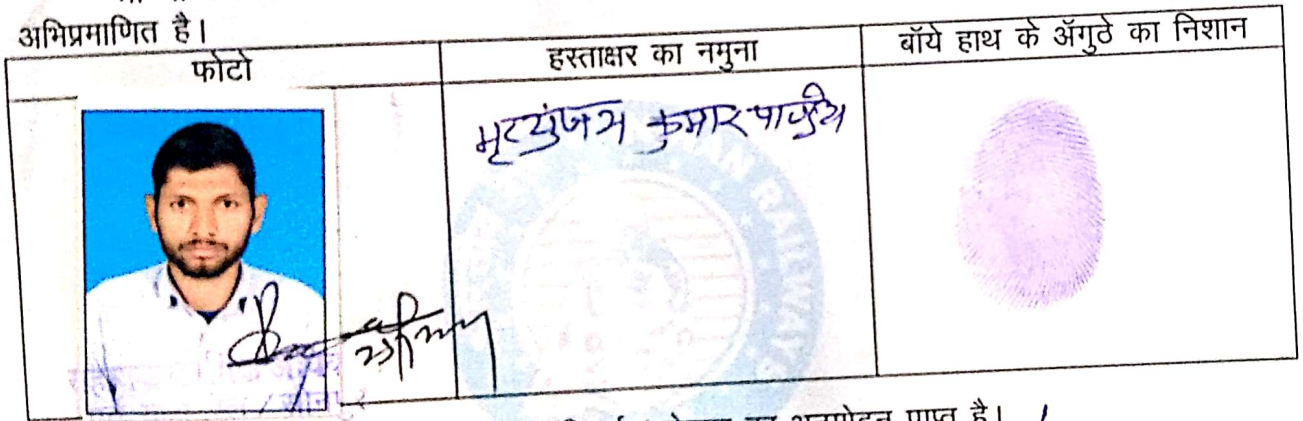 अभिप्रमाणित है।
फोटो हस्ताक्षर का नमुना बॉये हाथ के अँगुठे का निशान
मृत्युंजय कुमार पाण्डेय
RAILWAYS
प्राप्त है।